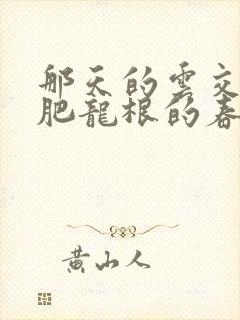 那天的雲交
肥龍根的春
黃山人